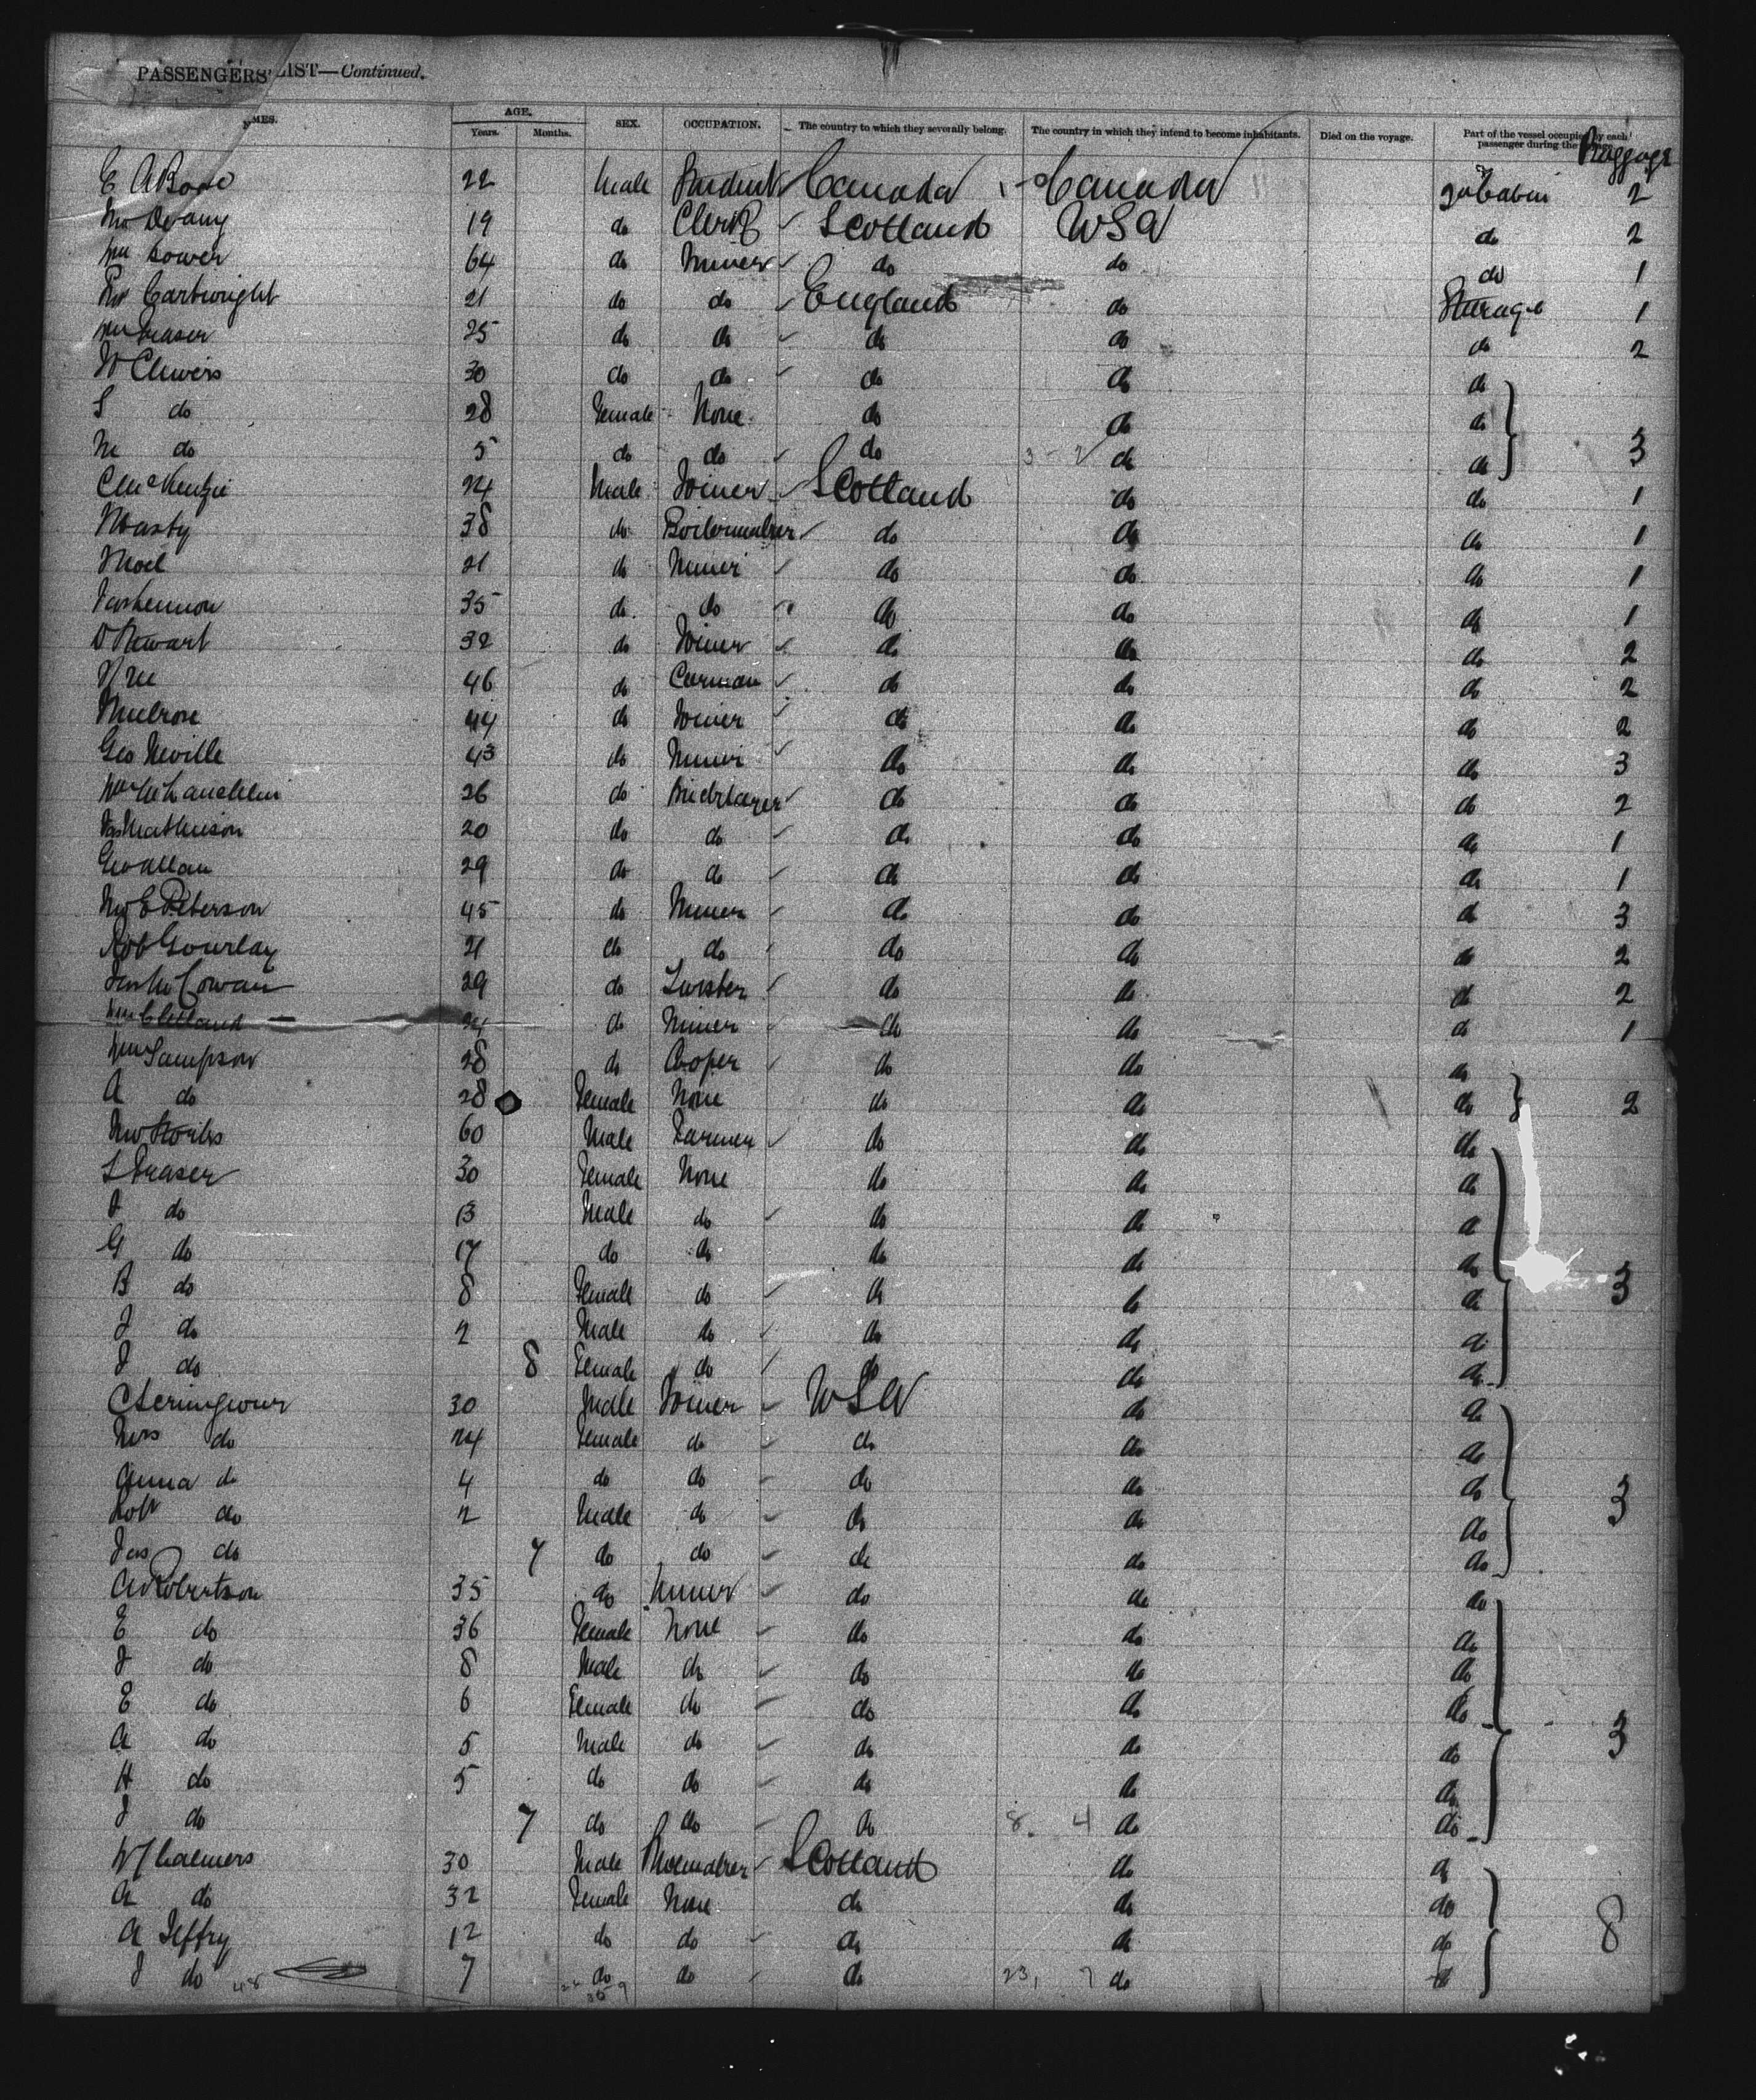 PASSENGERS' LIST—Continued.
NAMES. AGE. Years. Months. SEX. OCCUPATION. The country to which they severally belong. The country in which they intend to become inhabitants. Died on the voyage. Part of the vessel occupied by each passenger during the voyage. Baggage
E A 22 Male Student Canada Canada 2d Cabin 2
Devany 19 do Clerk Scotland USA do 2
Wm Bower 64 do Miner do do do 1
Cartwright 21 do do England do Steerage 1
Wm Fraser 25 do do do do do 2
W Clewers 30 do do do do do
S do 28 Female None do do do
M do 5 do do do 3 - 2 do do 3
C McKenzie 24 Male Joiner Scotland do do 1
38 do Boilermaker do do do 1
Noel 21 do Miner do do do 1
Jas Lennon 35 do do do do do 1
D Stewart 32 do Joiner do do do 2
46 do Carman do do do 2
Melrose 44 do Joiner do do do 2
Geo Neville 43 do Miner do do do 3
Wm McLauchlin 26 do Bricklayer do do do 2
Jas Mathieson 20 do do do do do 1
Geo Allan 29 do do do do do 1
E Peterson 45 do Miner do do do 3
Rob Gourlay 21 do do do do do 2
Jas McCowan 29 do do do do 2
Wm Clelland 24 do Miner do do do 1
Wm Sampson 28 do Cooper do do do
A do 28 Female None do do do 2
60 Male Farmer do do do
L Fraser 30 Female None do do do
J do 13 Male do do do do
G do 17 do do do do do
B do 8 Female do do do do 3
J do 2 Male do do do do
J do 8 Female do do do do
C Scrimgeour 30 Male Joiner USA do do
Mrs do 24 Female do do do do
Anna do 4 do do do do do 3
Robt do 2 Male do do do do
Jas do 7 do do do do do
A Robertson 35 do Miner do do do
E do 36 Female None do do do
J do 8 Male do do do do
E do 6 Female do do do do
A do 5 Male do do do do 3
H do 5 do do do do do
J do 7 do do do 8. 4 do do
W Chalmers 30 Male Scotland do do
A do 32 Female None do do do
A Jeffry 12 do do do do do 8
J do 48 7 do do do 23, 7 do do